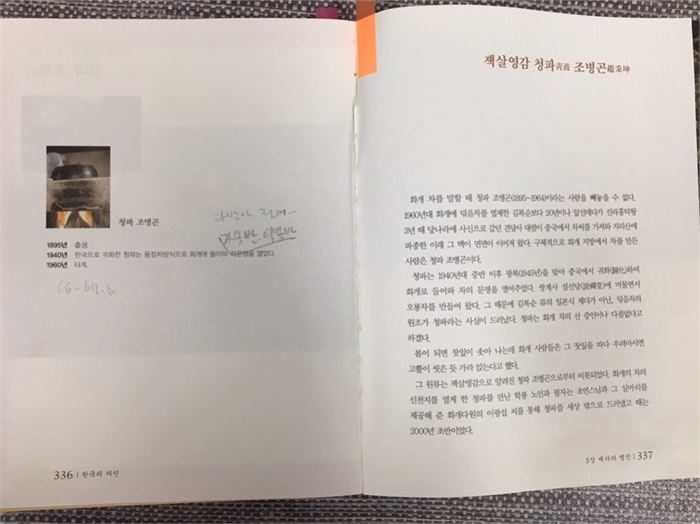 청파 조병곤
1895년 출생.
1940년 한국으로 귀화한 청파는 용정차방식으로 화개에 들어와 차문명을 열었다.
1960년 타계.
336 | 한국의 차인
잭살영감 청파靑波 조병곤趙秉坤
화개 차를 말할 때 청파 조병곤(1895~1964)이라는 사람을 빼놓을 수 없다.
1960년대 화개에 덖음차를 범제한 김복순보다 20년이나 앞선데다가 신라흥덕왕
3년 때 당나라에 사신으로 갔던 견당사 대렴이 중국에서 차씨를 가져와 지리산에
파종한 이래 그 맥이 면면이 이어져 왔다. 구체적으로 화개 지방에서 차를 만든
사람은 청파 조병곤이다.
청파는 1940년대 중반 이후 광복(1945년)을 맞아 중국에서 귀화(歸化)하여
화개로 들어와 차의 문명을 열어주었다. 쌍계사 설선당(說禪堂)에 머물면서
오룡차를 만들어 왔다. 그 때문에 김복순 류의 일본식 제다가 아닌, 덖음차의
원조가 청파라는 사실이 드러났다. 청파는 화개 차의 산 증인이나 다름없다고
하겠다.
봄이 되면 찻잎이 솟아 나는데 화개 사람들은 그 찻잎을 따다 우려마시면
고뿔이 씻은 듯 가라 앉는다고 했다.
그 원류는 잭살영감으로 알려진 청파 조병곤으로부터 비롯되었다. 화개의 차의
신천지를 열게 한 청파를 만난 학봉 노인과 필자는 초연스님과 그 실마리를
제공해 준 화개다원의 이광섭 씨를 통해 청파를 세상 밖으로 드러냈고 때는
2000년 초반이었다.
5장 베다의 명인 | 337